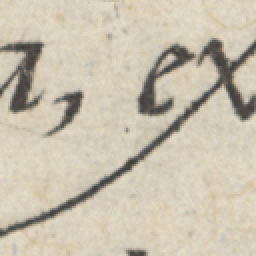 a, ex